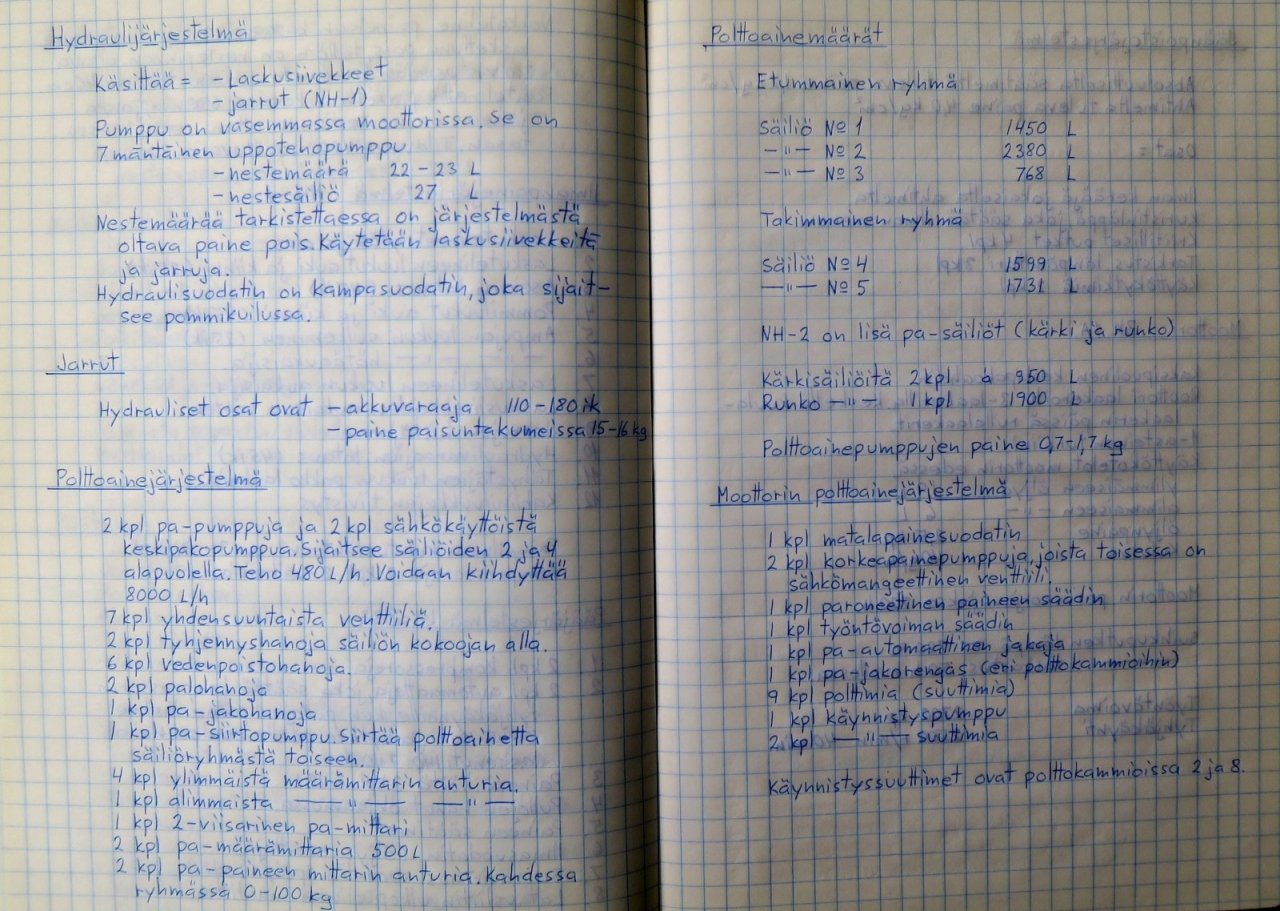 Hydraulijärjestelmä
Käsittää = - Laskusiivekkeet
- jarrut (NH-1)
Pumppu on vasemmassa moottorissa. Se on
7 mäntäinen uppotehopumppu.
- nestemäärä 22 - 23 L
- nestesäiliö 27 L
Nestemäärää tarkistettaessa on järjestelmästä
oltava paine pois. Käytetään laskusiivekkeitä
ja jarruja.
Hydraulisuodatin on kampasuodatin, joka sijait-
see pommikuilussa.
Jarrut
Hydrauliset osat ovat - akkuvaraaja 110 - 180 ik
- paine paisuntakumeissa 15-16 kg
Polttoainejärjestelmä
2 kpl pa-pumppuja ja 2 kpl sähkökäyttöistä
keskipakopumppua. Sijaitsee säiliöiden 2 ja 4
alapuolella. Teho 480 L/h. Voidaan kiihdyttää
8000 L/h
7 kpl yhdensuuntaista venttiiliä.
2 kpl tyhjennyshanoja säiliön kokoojan alla.
6 kpl vedenpoistohanoja.
2 kpl palohanoja
1 kpl pa-jakohanoja
1 kpl pa-siirtopumppu. Siirtää polttoainetta
säiliöryhmästä toiseen.
4 kpl ylimmäistä määrämittarin anturia.
1 kpl alimmaista —"— —"—
1 kpl 2-viisarinen pa-mittari
2 kpl pa-määrämittaria 500 L
2 kpl pa-paineen mittarin anturia. Kahdessa
ryhmässä 0-100 kg
Polttoainemäärät
Etummainen ryhmä
Säiliö № 1 1450 L
—"— № 2 2380 L
—"— № 3 768 L
Takimmainen ryhmä
Säiliö № 4 1599 L
—"— № 5 1731 L
NH-2 on lisä pa-säiliöt (kärki ja runko)
Kärkisäiliöitä 2 kpl á 950 L
Runko —"— 1 kpl 1900 L
Polttoainepumppujen paine 0,7-1,7 kg
Moottorin polttoainejärjestelmä
1 kpl matalapainesuodatin
2 kpl korkeapainepumppuja, joista toisessa on
sähkömangeettinen venttiili.
1 kpl paroneettinen paineen säädin
1 kpl työntövoiman säädin
1 kpl pa-automaattinen jakaja
1 kpl pa-jakorengas (eri polttokammioihin)
9 kpl polttimia (suuttimia)
1 kpl käynnistyspumppu
2 kpl —"— suuttimia
Käynnistyssuuttimet ovat polttokammioissa 2 ja 8.